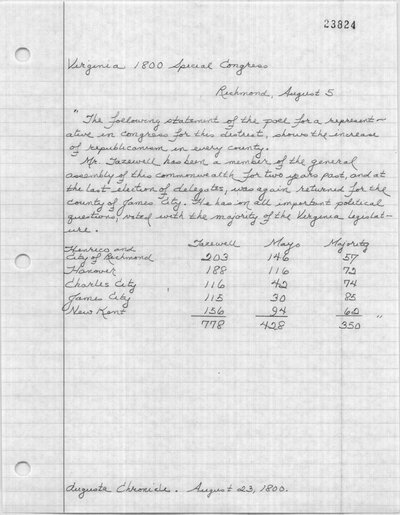 23824
Virginia 1800 Special Congress
Richmond, August 5
"The following statement of the poll for a represent-
ative in congress for this district, shows the increase
of republicanism in every county.
Mr. Tazewell has been a member of the general
assembly of this commonwealth for two years past, and at
the last election of delegates, was again returned for the
county of James City. He has on all important political
questions, voted with the majority of the Virginia legislat-
ure.
Tazewell Mayo Majority
Henrico and
City of Richmond 203 146 57
Hanover 188 116 72
Charles City 116 42 74
James City 115 30 85
New Kent 156 94 62 "
778 428 350
Augusta Chronicle. August 23, 1800.